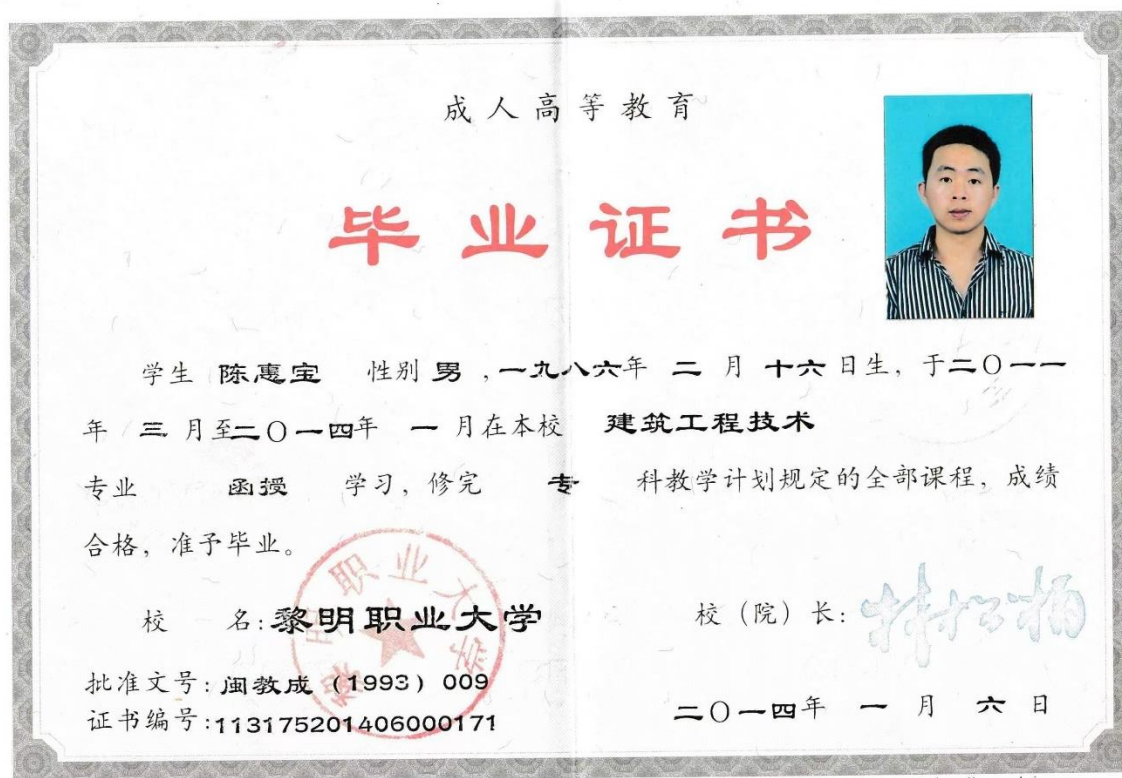 成人高等教育
毕业证书
学生 陈惠宝 性别 男 ,一九八六年 二 月 十六 日生, 于二〇一一
年 三 月至二〇一四年 一 月在本校 建筑工程技术
专业 函授 学习, 修完 专 科教学计划规定的全部课程, 成绩
合格, 准予毕业。
校 名: 黎明职业大学
校 (院) 长:
批准文号: 闽教成 (1993) 009
证书编号: 113175201406000171
二〇一四年 一 月 六 日
黎明职业大学